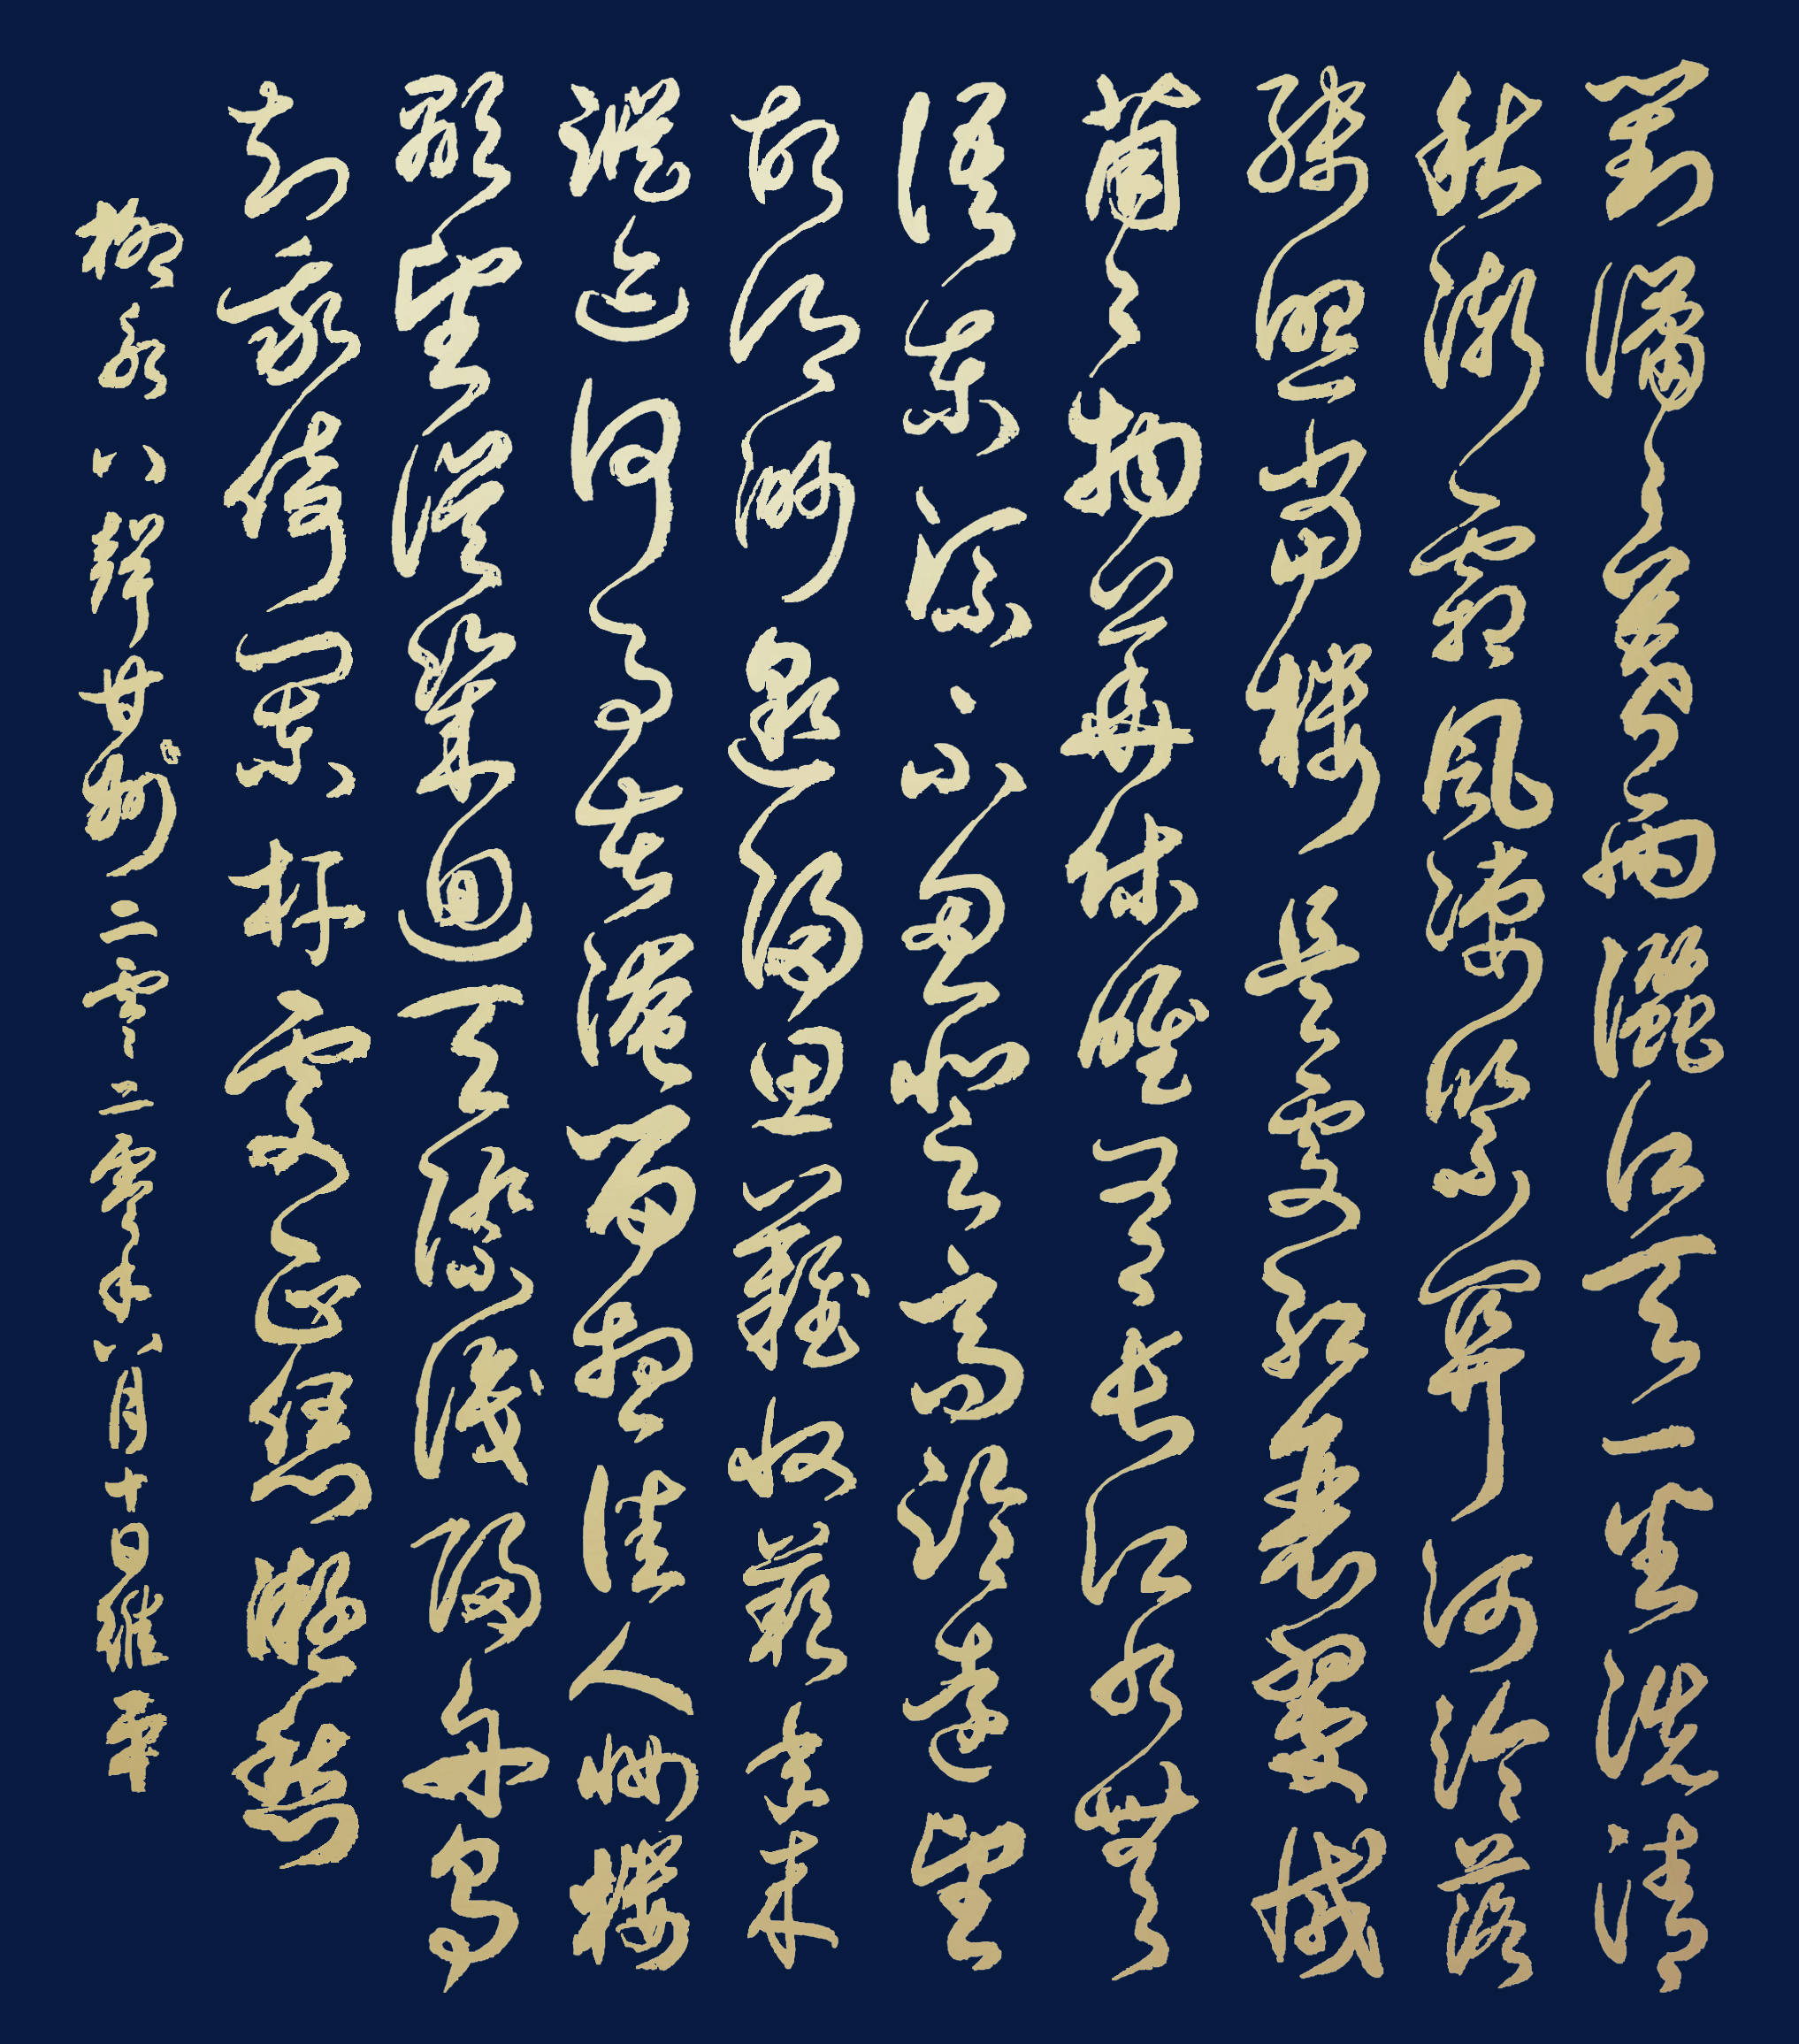 對瀟瀟暮雨灑江天一番洗清
秋漸霜風淒緊關河冷落
殘照當樓是處紅衰翠減
苒苒物華休唯有長江水無
語東流不忍登高臨遠望
故鄉渺邈歸思難收嘆年來
蹤迹何事苦淹留想佳人妝樓
顒望誤幾回天際識歸舟爭
知我倚闌杆處正恁凝愁
柳永八聲甘州二零二零年八月十日維